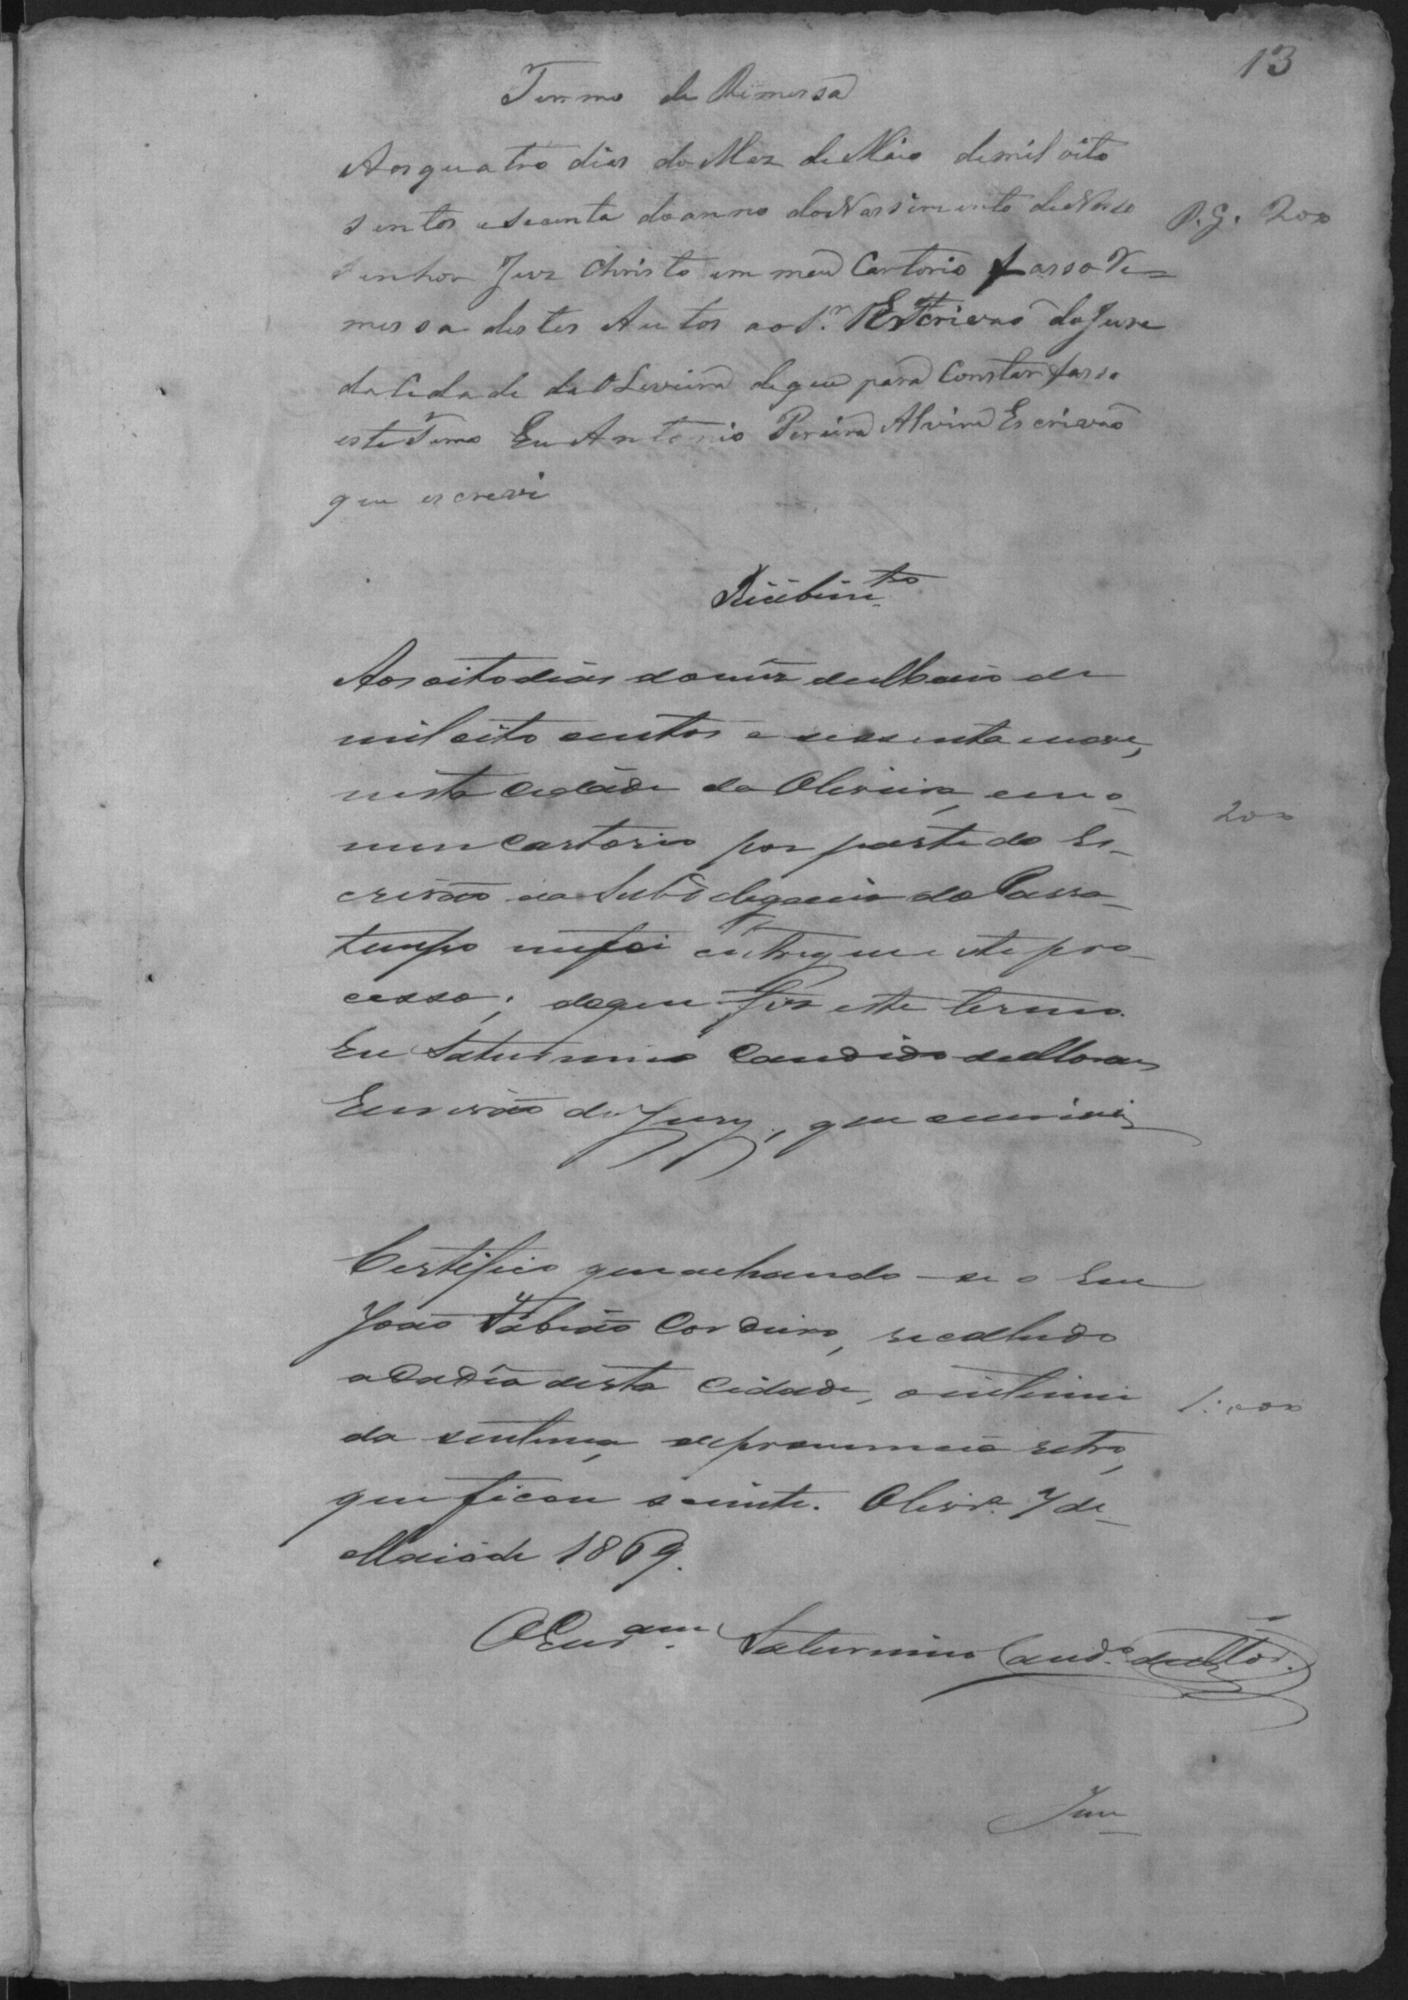 13
Termo de Remersa
Aos quatro dias do Mez de Maio de mil oito
sentos e secenta do anno do Nassimento de Nosso
P. G. 200
Senhor Jesuz Christo em meu Cartorio fasso Re=
mersa destes Autos ao S.r Escrivão do Jure
da Cidade da Oliveira de que para Constar fasso
este Termo Eu Antonio Pereira Alvim Escrivão
que escrevi
Recebim.to
Aos oito dias do mez de Maio de
mil oito centos e sessenta e nove,
nesta Cidade da Oliveira, em o
200
meu Cartorio por parte do Es-
crivão da Subdelegacia do Passa-
tempo me foi entregue este pro-
cesso; do que fiz este termo.
Eu Saturnino Candido de Moraes
Escrivão do Jury, que escrevi
Certifico que achando-se o Reu
João Fabião Cordeiro, recolhido
a Cadêa desta Cidade, o intimei
1:000
da sentença de pronuncia retro,
que ficou sciente. Olivr.a 7 de
Maio de 1869.
O Escr.am Saturnino Cand.o de Mor.
Jun-